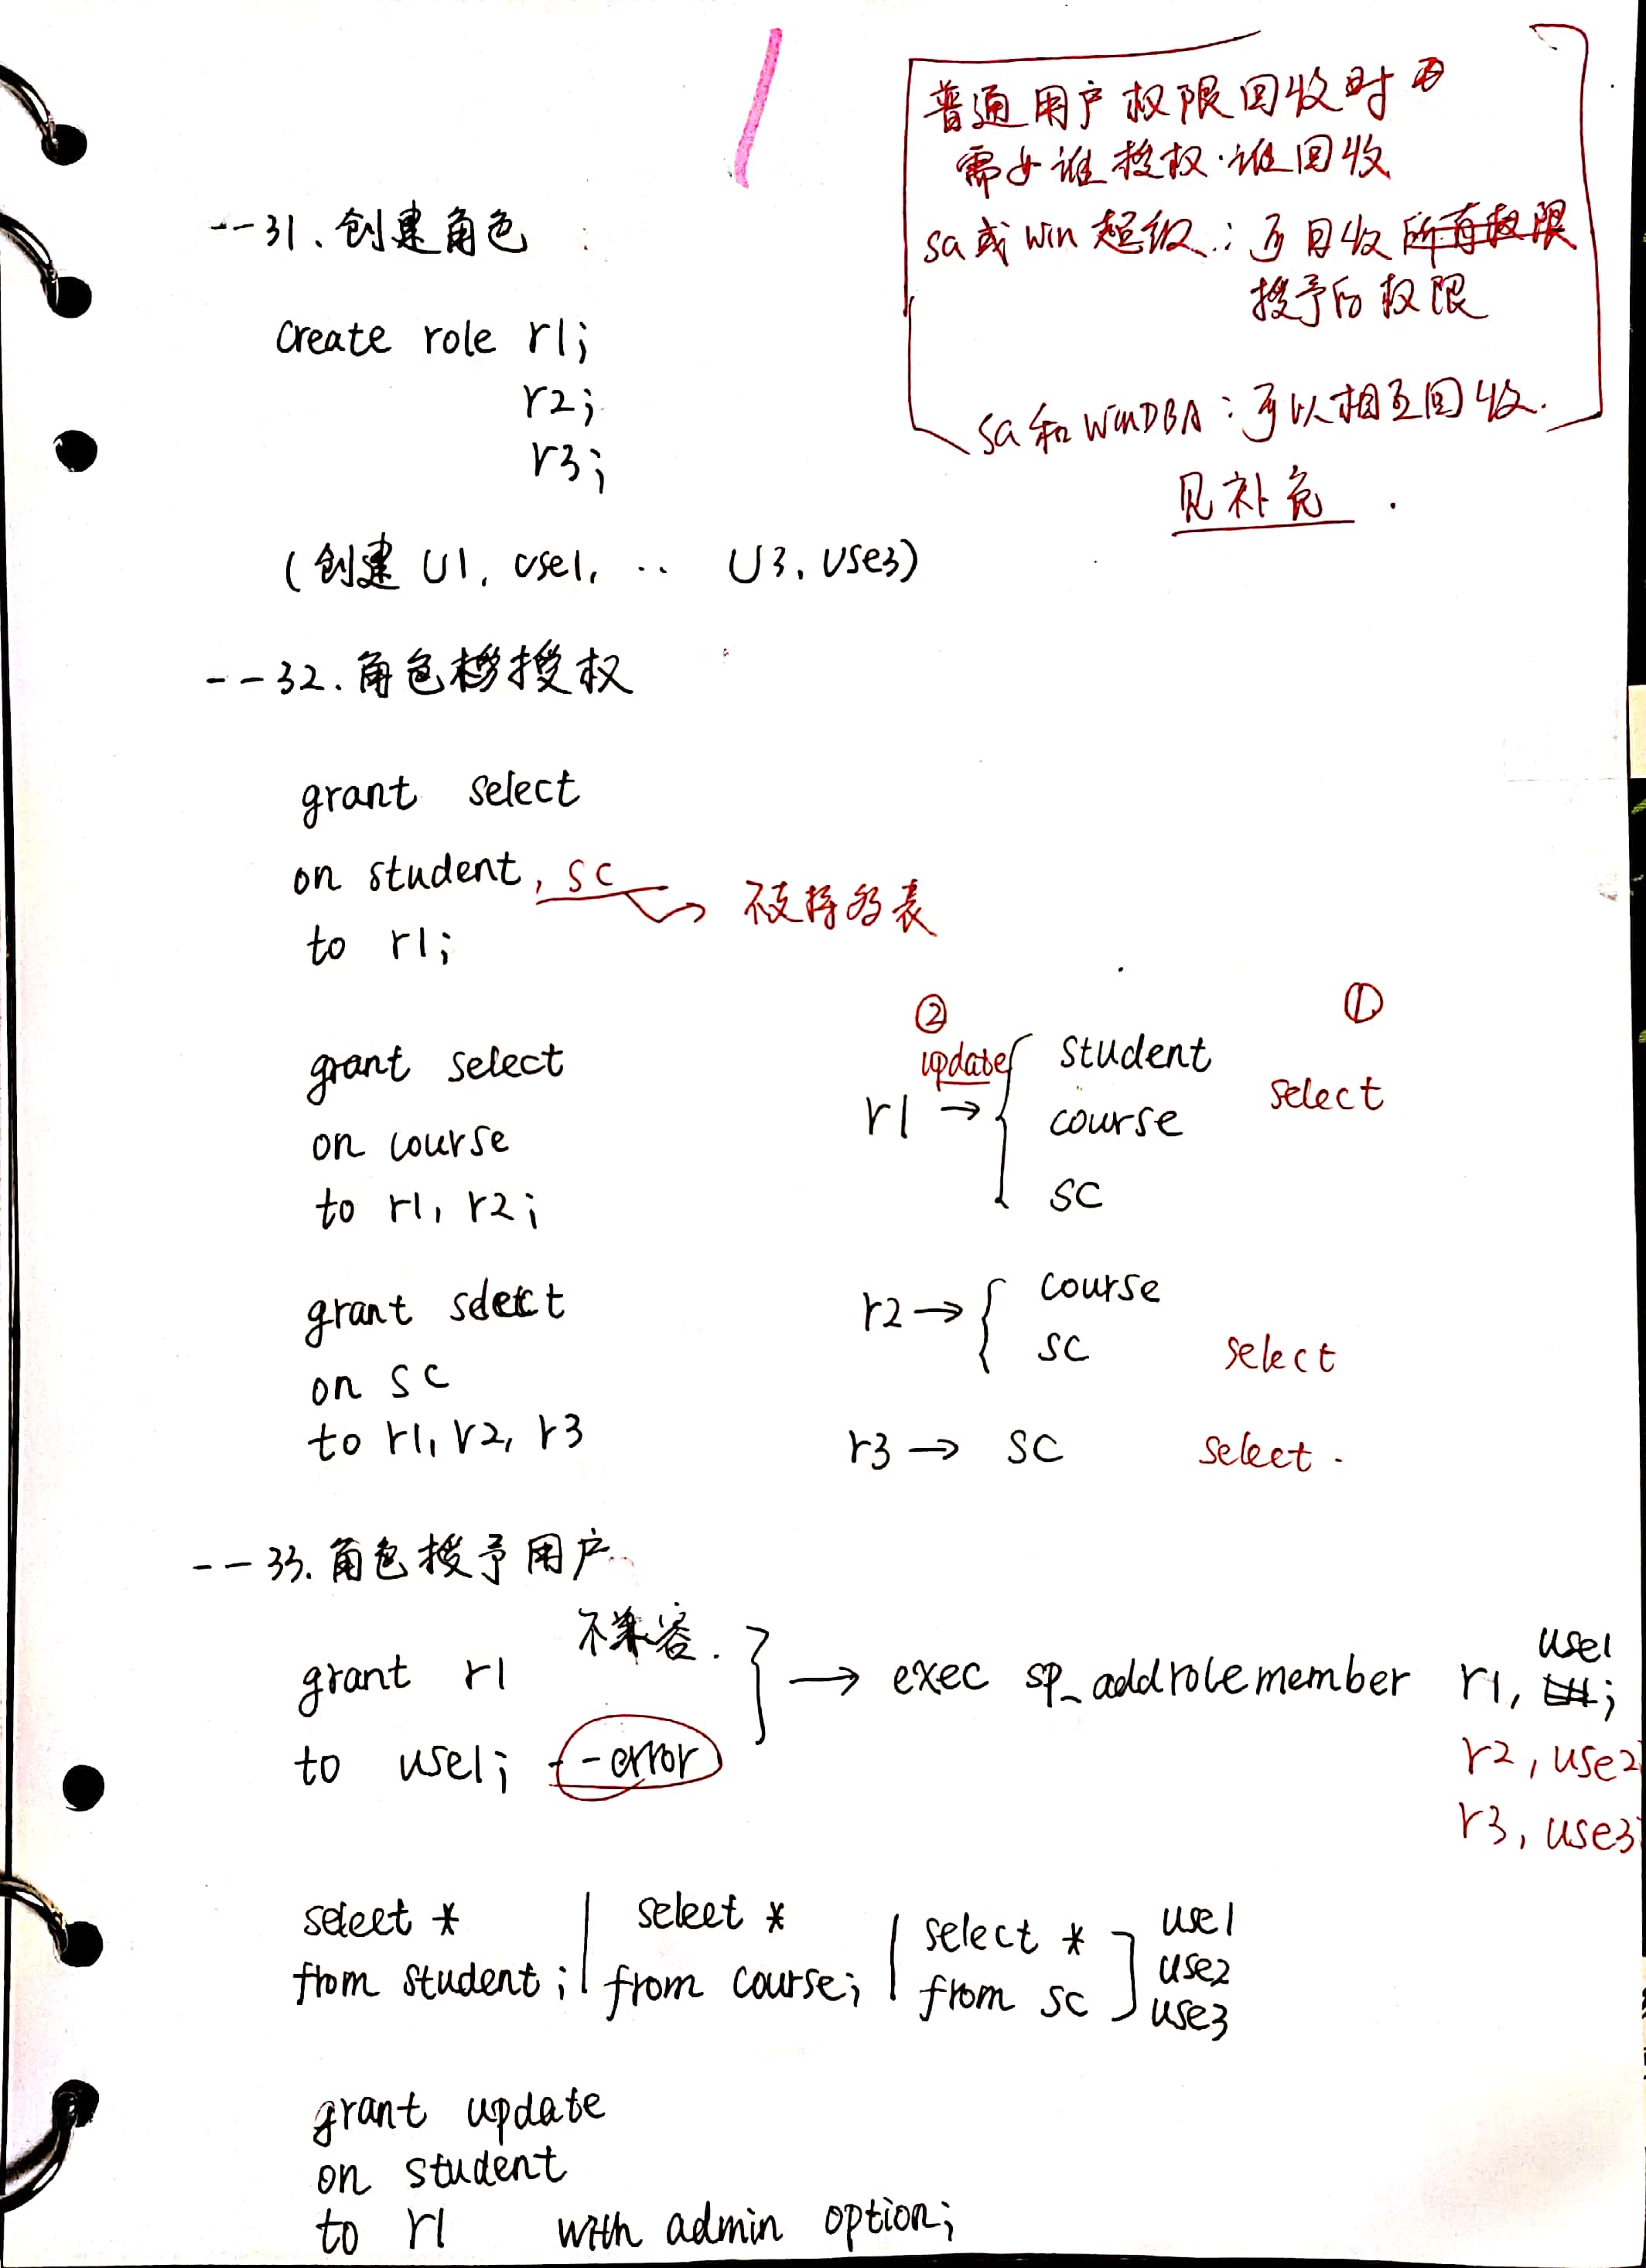 普通用户权限回收时
需要谁授权.谁回收
sa或win超级:可回收所有权限
授予的权限
sa和WinDBA:可以相互回收.
见补充.
--31、创建角色
create role r1;
r2;
r3;
(创建U1, use1, .. U3, use3)
--32.角色授权
grant select
on student, sc → 不支持多表
to r1;
grant select
on course
to r1, r2;
grant select
on sc
to r1, r2, r3
② ①
update student
r1 → course select
sc
r2 → course
sc select
r3 → sc select.
--33.角色授予用户
不兼容.
grant r1 → exec sp_addrolemember r1, use1;
to use1; --error
r2, use2
r3, use3
select * | select * | select * use1
from student; | from course; | from sc use2
use3
grant update
on student
to r1 with admin option;